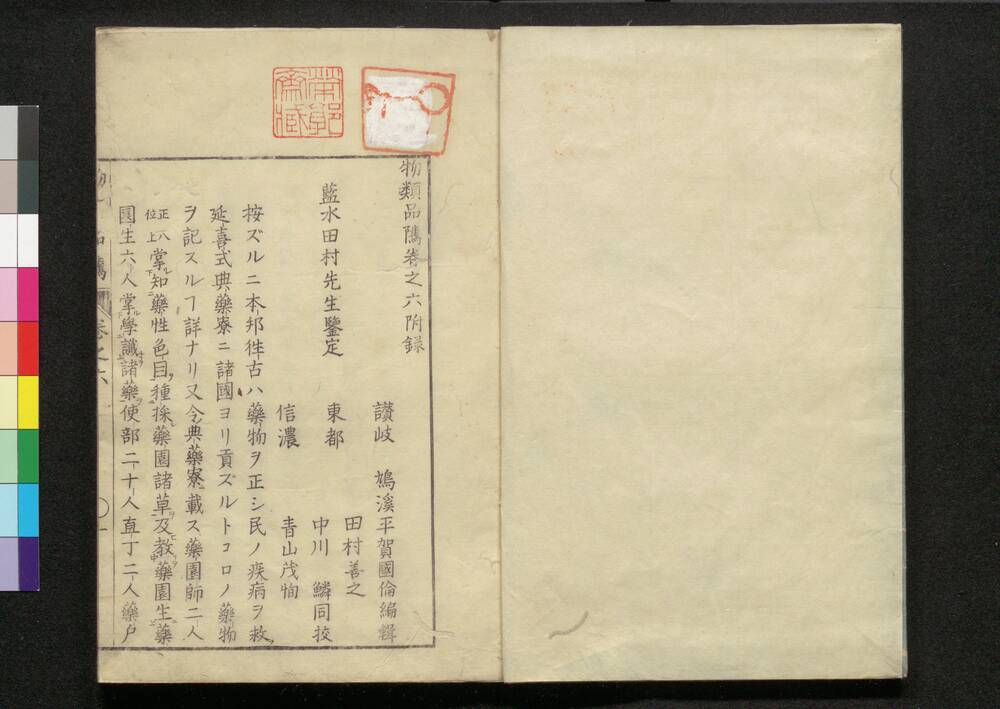 物類品隲巻之六附録
讃岐 鳩溪平賀國倫編輯
藍水田村先生鑒定 東都 田村善之
中川 鱗同挍
信濃 青山茂恂
按ズルニ本邦徃古ハ藥物ヲ正シ民ノ疾病ヲ救
延喜式典藥寮ニ諸國ヨリ貢ズルトコロノ藥物
ヲ記スルヿ詳ナリ又令典藥寮載ス藥園師二人
正八位上掌知藥性色目種採藥園諸草及教藥園生藥
園生六人掌學識諸藥使部二十人直丁二人藥戸
巻之六